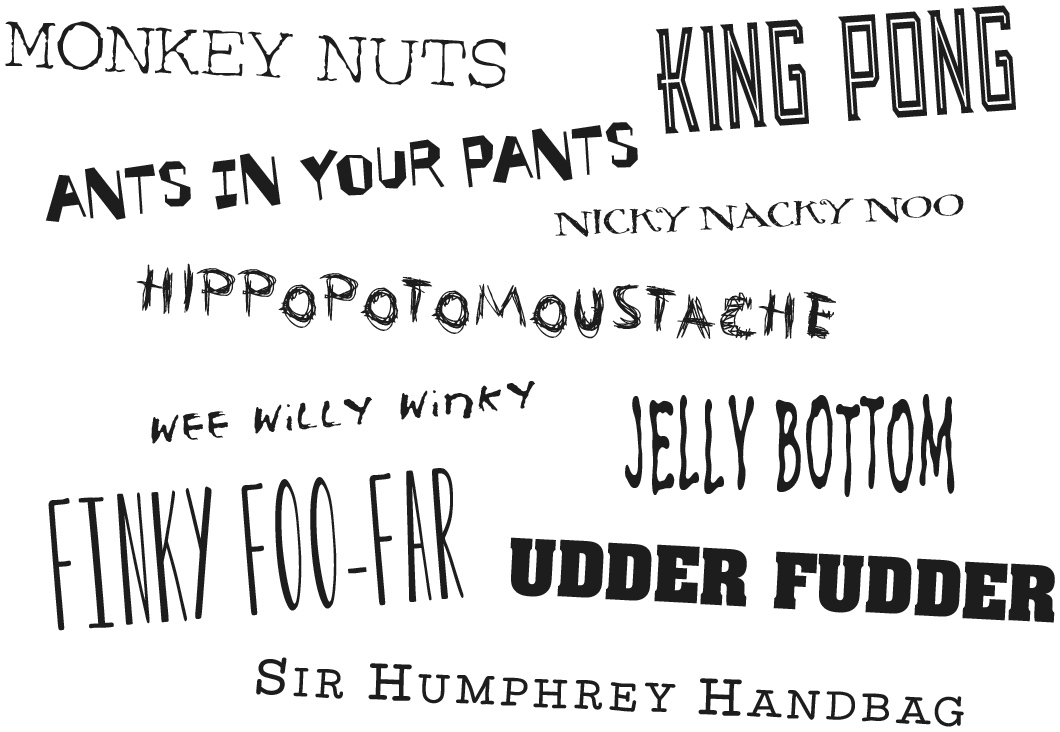 MONKEY NUTS
KING PONG
ANTS IN YOUR PANTS
NICKY NACKY NOO
HIPPOPOTOMOUSTACHE
WEE WiLLY WinKY
JELLY BOTTOM
FINKY FOO-FAR
UDDER FUDDER
SIR HUMPHREY HANDBAG